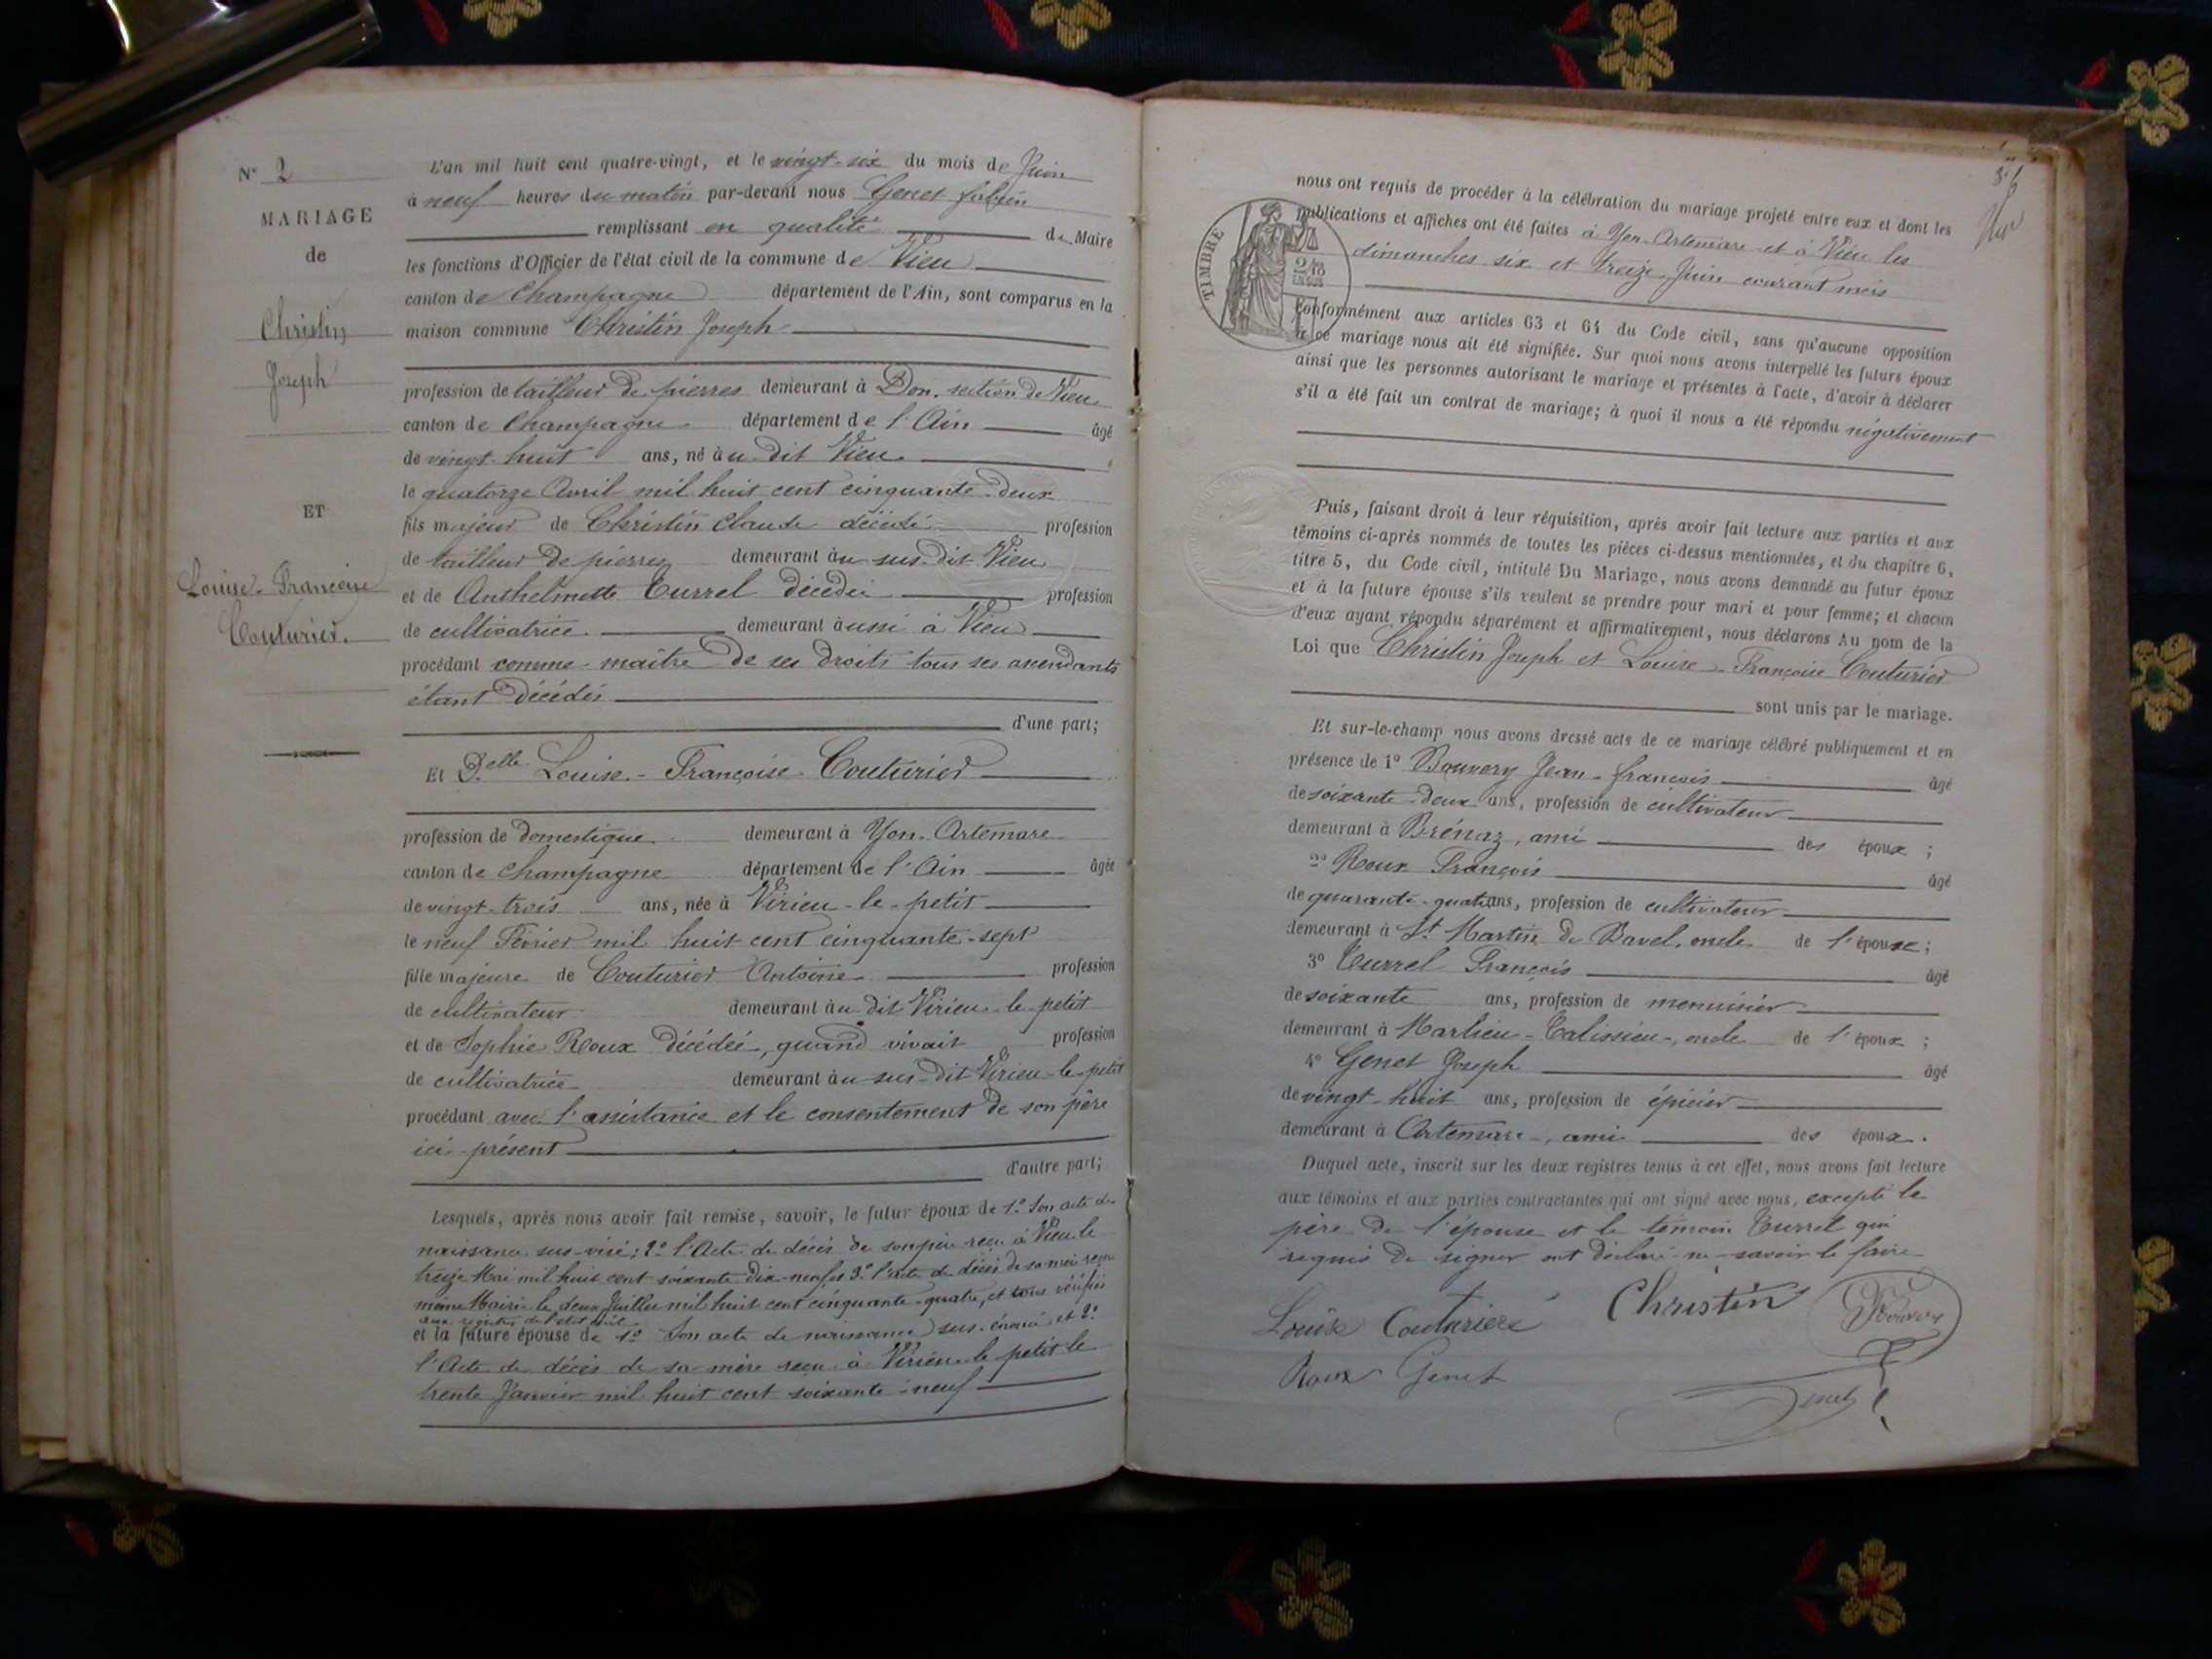 N° 2
MARIAGE
de
Christin
Joseph
ET
Louise-Françoise
Couturier.
L'an mil huit cent quatre-vingt, et le vingt-six du mois de Juin
à neuf heures du matin par-devant nous Genet fabien
remplissant en qualité de Maire
les fonctions d'Officier de l'état civil de la commune de Vieu
canton de Champagne département de l'Ain, sont comparus en la
maison commune Christin Joseph
profession de tailleur de pierres demeurant à Don, section de Vieu
canton de Champagne département de l'Ain âgé
de vingt-huit ans, né au dit Vieu
le quatorze Avril mil huit cent cinquante-deux
fils majeur de Christin Claude décédé profession
de tailleur de pierres demeurant au sus-dit Vieu
et de Anthelmette Turrel décédée profession
de cultivatrice demeurant aussi à Vieu
procédant comme maître de ses droits tous ses ascendants
étant décédés
d'une part;
Et Delle Louise-Françoise Couturier
profession de domestique demeurant à Yon-Artemare
canton de Champagne département de l'Ain âgée
de vingt-trois ans, née à Virieu-le-petit
le neuf Février mil huit cent cinquante-sept
fille majeure de Couturier Antoine profession
de cultivateur demeurant au dit Virieu-le-petit
et de Sophie Roux décédée, quand vivait profession
de cultivatrice demeurant au sus-dit Virieu-le-petit
procédant avec l'assistance et le consentement de son père
ici présent
d'autre part;
Lesquels, après nous avoir fait remise, savoir, le futur époux de 1° Son acte de
naissance sus-visé; 2° l'Acte de décès de son père reçu à Vieu le
treize Mai mil huit cent soixante dix-neuf et 3° l'acte de décès de sa mère reçu
même Mairie le deux Juillet mil huit cent cinquante-quatre, et tous vérifiés
aux registres de l'état civil
et la future épouse de 1° Son acte de naissance sus-énoncé et 2°
l'Acte de décès de sa mère reçu à Virieu-le-petit le
trente Janvier mil huit cent soixante-neuf
nous ont requis de procéder à la célébration du mariage projeté entre eux et dont les
publications et affiches ont été faites à Yon-Artemare et à Vieu les
dimanches six et treize Juin courant mois
TIMBRE
conformément aux articles 63 et 64 du Code civil, sans qu'aucune opposition
à ce mariage nous ait été signifiée. Sur quoi nous avons interpellé les futurs époux
ainsi que les personnes autorisant le mariage et présentes à l'acte, d'avoir à déclarer
s'il a été fait un contrat de mariage; à quoi il nous a été répondu négativement
Puis, faisant droit à leur réquisition, après avoir fait lecture aux parties et aux
témoins ci-après nommés de toutes les pièces ci-dessus mentionnées, et du chapitre 6,
titre 5, du Code civil, intitulé Du Mariage, nous avons demandé au futur époux
et à la future épouse s'ils veulent se prendre pour mari et pour femme; et chacun
d'eux ayant répondu séparément et affirmativement, nous déclarons Au nom de la
Loi que Christin Joseph et Louise-Françoise Couturier
sont unis par le mariage.
Et sur-le-champ nous avons dressé acte de ce mariage célébré publiquement et en
présence de 1° Bouvery Jean-françois âgé
de soixante-deux ans, profession de cultivateur
demeurant à Brénaz, ami des époux;
2° Roux François âgé
de quarante-quatre ans, profession de cultivateur
demeurant à St Martin de Bavel, oncle de l'épouse;
3° Turrel François âgé
de soixante ans, profession de menuisier
demeurant à Marlieu-Talissieu, oncle de l'époux;
4° Genet Joseph âgé
de vingt-huit ans, profession de épicier
demeurant à Artemare, ami des époux.
Duquel acte, inscrit sur les deux registres tenus à cet effet, nous avons fait lecture
aux témoins et aux parties contractantes qui ont signé avec nous, excepté le
père de l'épouse et le témoin Turrel qui
requis de signer ont déclaré ne savoir le faire
Louise Couturier Christin Bouvery
Roux Genet
Genet